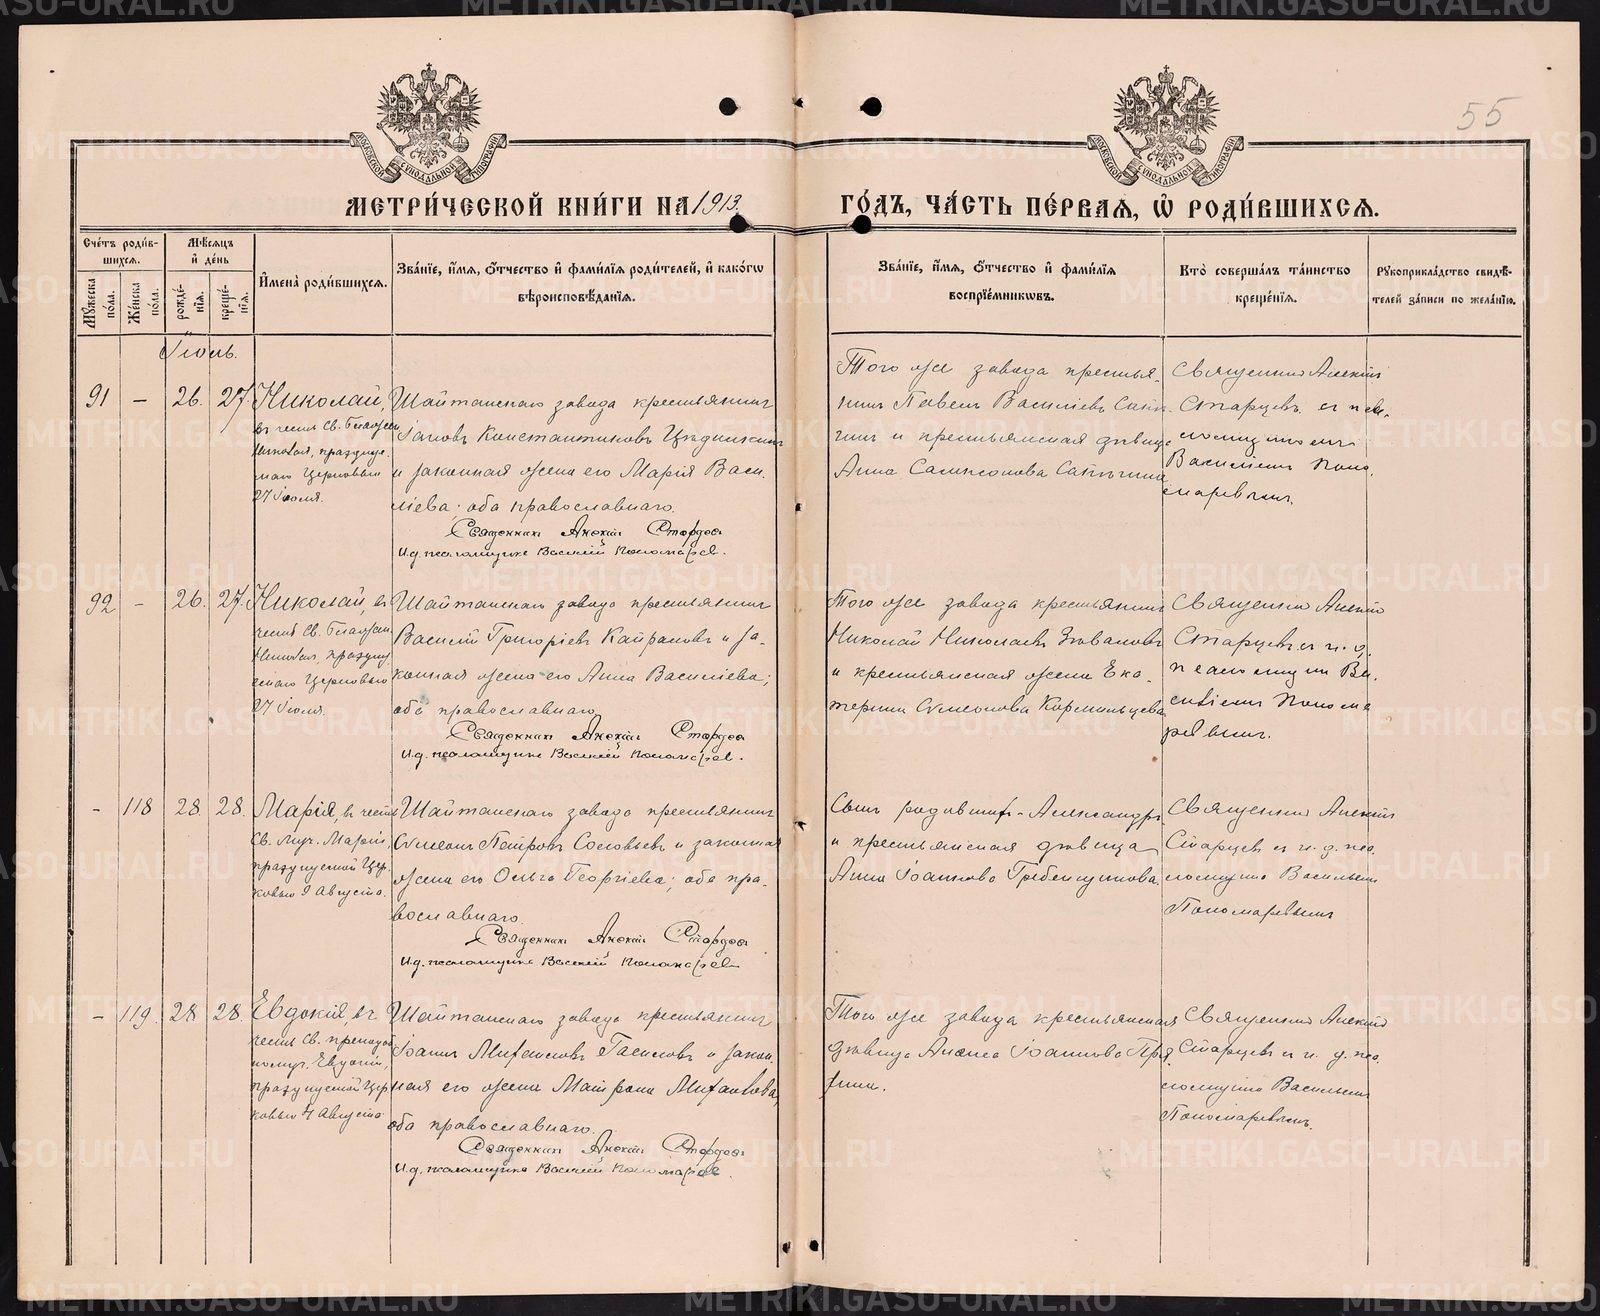 55
МЕТРИ́ЧЕСКОЙ КНИ́ГИ НА 1913.
ГО́ДЪ, ЧА́СТЬ ПЕ́РВАЯ, Ѡ РОДИ́ВШИХСЯ.
Сче́тъ роди́вшихся.
Мѣ́сяцъ и де́нь
Му́жеска по́ла.
Же́нска по́ла.
рожде́нїя.
креще́нїя.
И҆мена̀ роди́вшихся.
Зва́нїе, и҆́мя, ѻ҆́тчество и҆ фами́лїя роди́телей, и҆ како́гѡ
вѣроисповѣ́данїя.
Зва́нїе, и҆́мя, ѻ҆́тчество и҆ фами́лїя
воспрїе́мникѡвъ.
Кто̀ соверша́лъ та́инство
креще́нїя.
Рукоприкла́дство свидѣ́-
телей за́писи по жела́нїю.
Іюль.
91 - 26. 27.
Николай,
въ честь Св. Блажен.
Николая, праздуе-
маго Церковью
27 Іюля.
Шайтанскаго завода крестьянинъ
Іаковъ Константиновъ
и законная жена его Марія Васи-
ліева; оба православнаго.
Священник Алексій Старцев
И.д. псаломщика Василій Пономарев.
Того же завода крестья-
нинъ Павелъ Василіевъ
и крестьянская дѣвица
Анна Самсонова
Священникъ Алексій
Старцевъ съ и.д.
псаломщикомъ
Василіемъ Поно-
маревымъ.
92 - 26. 27.
Николай, въ
честь Св. Блажен.
Николая, праздуе-
маго Церковью
27 Іюля.
Шайтанскаго завода крестьянинъ
Василій Григоріевъ Кайгаловъ и за-
конная жена его Анна Василіева;
оба православнаго.
Священник Алексій Старцев
И.д. псаломщика Василій Пономарев.
Того же завода крестьянинъ
Николай Николаевъ
и крестьянская жена Ека-
терина Симеонова Кормильцева
Священникъ Алексій
Старцевъ съ и. д.
псаломщик. Ва-
силіемъ Понома
ревымъ.
- 118 28. 28.
Марія, въ честь
Св. муч. Маріи,
празднуемой Цер-
ковью 9 Августа.
Шайтанскаго завода крестьянинъ
Симеонъ Петровъ Соловьевъ и законная
жена его Ольга Георгіева; оба пра-
вославнаго.
Священник Алексій Старцев
И.д. псаломщика Василій Пономарев
Сынъ родившей - Александръ
и крестьянская дѣвица
Анна Іоаннова Гребенщикова.
Священникъ Алексій
Старцевъ съ и. д. пса-
ломщика Васильемъ
Пономаревымъ
- 119. 28 28.
Евдокія, въ
честь Св. преподо
номуч. Евдокіи,
празднуемой Цер
ковью 4 Августа
Шайтанскаго завода крестьянинъ
Іоаннъ Михаиловъ Гасиловъ и закон-
ная его жена Матрона Михайлова,
оба православнаго.
Священник Алексій Старцев
И.д. псаломщика Василій Пономарев.
Того же завода крестьянская
дѣвица Іоаннова Пря
хина.
Священникъ Алексій
Старцевъ съ и. д. пса-
ломщика Васильемъ
Пономаревымъ.
METRIKI.GASO-URAL.RU